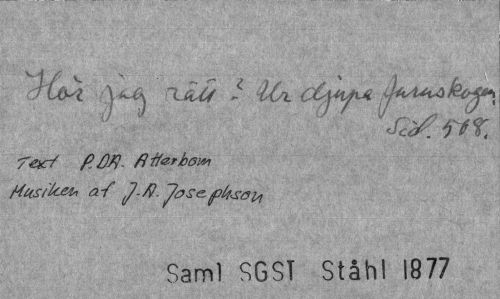 Hör jag rätt? Ur djupa furuskogen,
Sid. 568.
Text P.D.A. Atterbom
Musiken af J.A. Josephson
Saml SGST Ståhl 1877